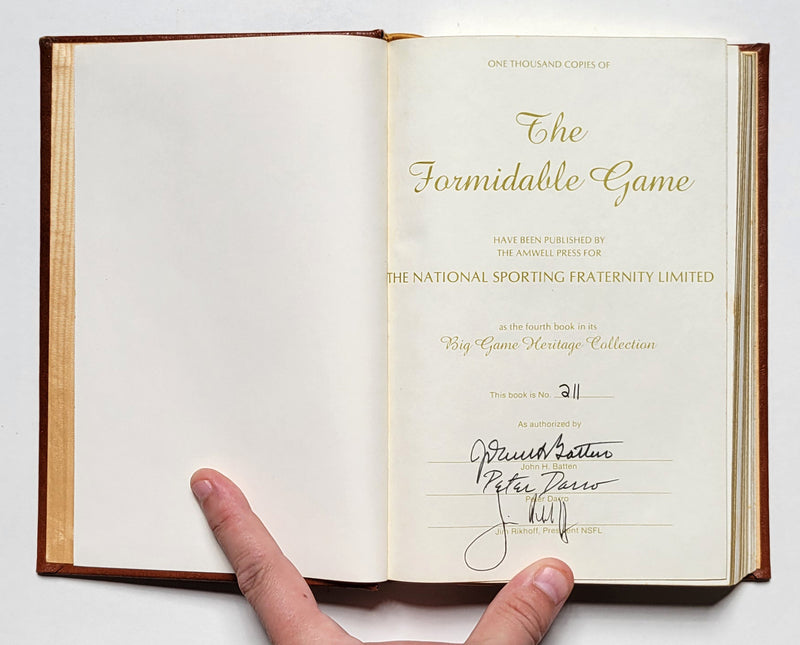 ONE THOUSAND COPIES OF
The
Formidable Game
HAVE BEEN PUBLISHED BY
THE AMWELL PRESS FOR
THE NATIONAL SPORTING FRATERNITY LIMITED
as the fourth book in its
Big Game Heritage Collection
This book is No. 211
As authorized by
John H Batten
John H. Batten
Peter Darro
Peter Darro
Jim Rikhoff
Jim Rikhoff, President NSFL